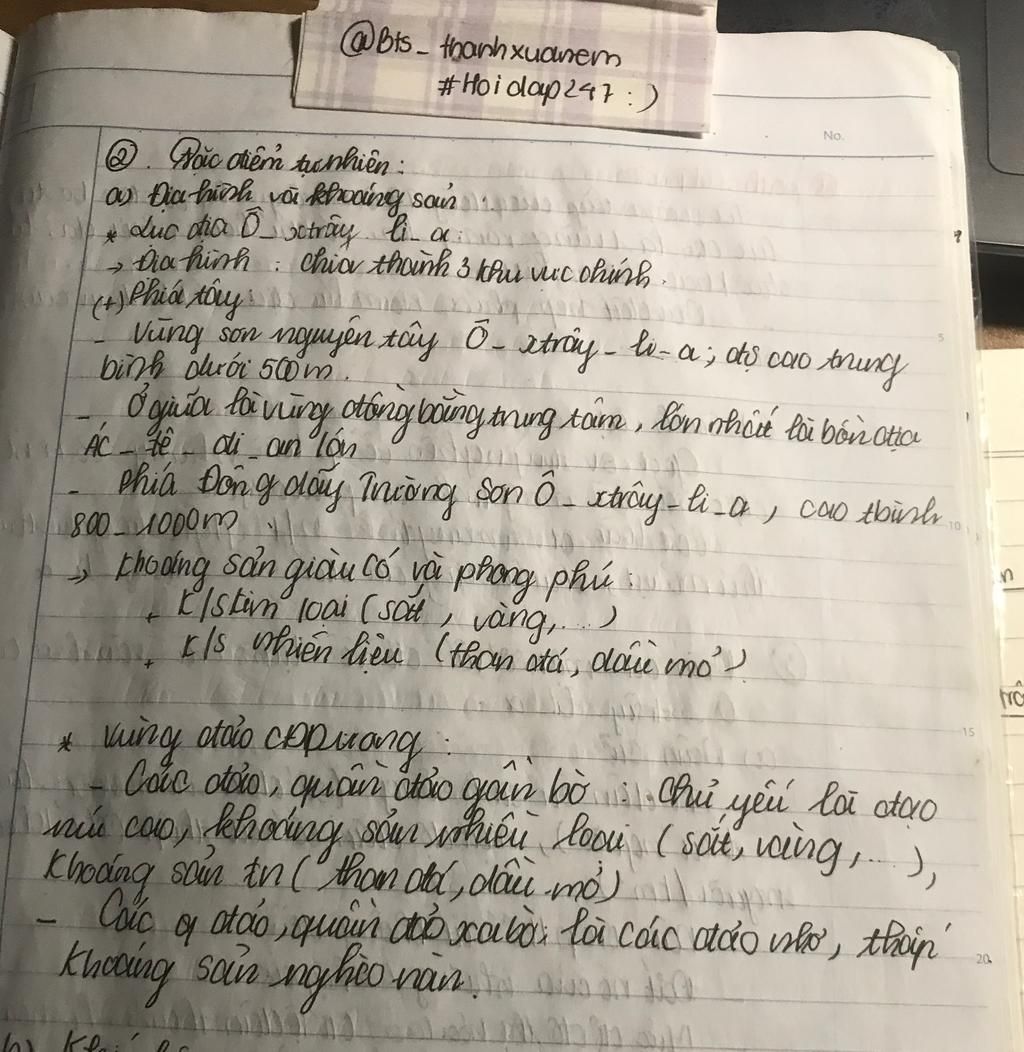 @Bts_ thanhxuanem
#Hoidap247 :)
No.
② . Đặc điểm tự nhiên :
a) Địa hình và khoáng sản :
* Lục địa Ô_ xtrây li_ a :
→ Địa hình : chia thành 3 khu vực chính .
(+) Phía tây :
- Vùng sơn nguyên tây Ô_ xtrây_ li_a ; độ cao trung
bình dưới 500m .
- Ở giữa là vùng đồng bằng trung tâm , lớn nhất là bồn địa
Ác_ tê_ di_ an lớn
- Phía Đông dãy Trường Sơn Ô_ xtrây_li_a , cao tbình
800_1000m .
→ Khoáng sản giàu có và phong phú :
+ K/S kim loại ( sắt , vàng, ... )
+ K/s nhiên liệu ( than đá, dầu mỏ )
* Vùng đảo
- Các đảo, quần đảo gần bờ : chủ yếu là đạo
núi cao, khoáng sản nhiều loại ( sắt, vàng, ... ),
khoáng sản tn ( than đá, dầu mỏ )
- Các q đảo, quần đảo xa bờ: là các đảo nhỏ, thấp
khoáng sản nghèo nàn .
5
10
15
20